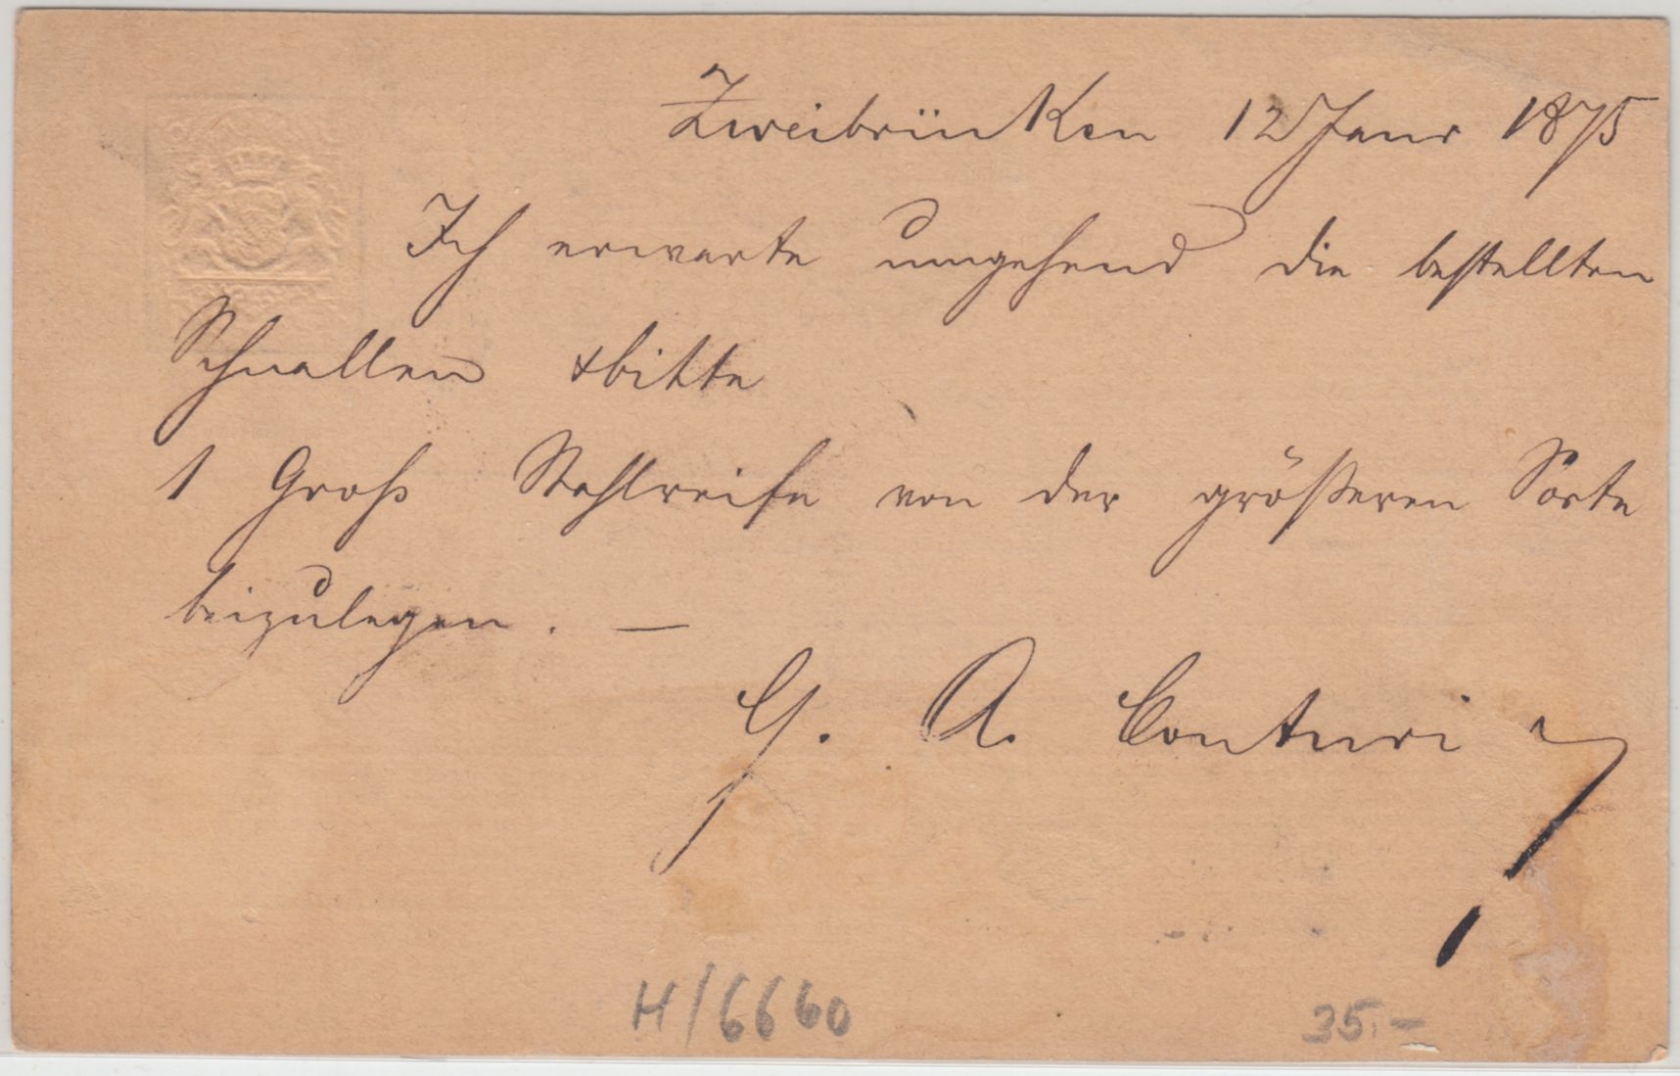 Zweibrücken 12 Janr 1875
Ich erwarte umgehend die bestellten
Schnallen & bitte
1 Groß Stahlreife von der größeren Sorte
beizulegen. —
G. A. Conturi
H/6660
35.-